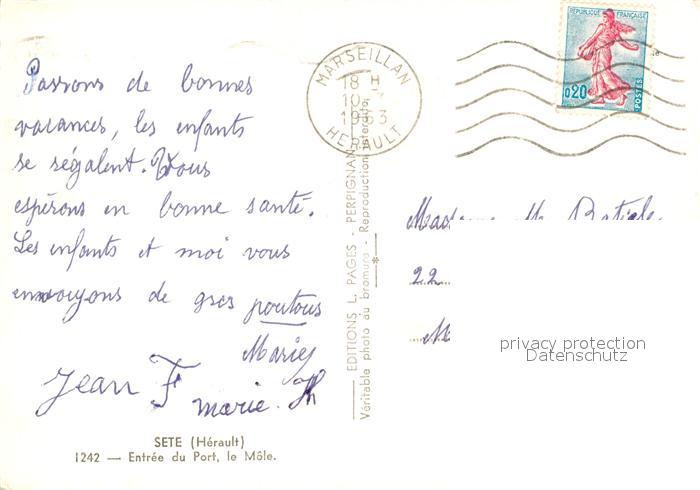 Passons de bonnes
vacances, les enfants
se régalent. Vous
espérons en bonne santé.
Les enfants et moi vous
envoyons de gros poutous
Marie
Jean F marie. Th
SETE (Hérault)
1242 — Entrée du Port, le Môle.
EDITIONS L. PAGES - PERPIGNAN
Véritable photo au bromure - Reproduction interdite
MARSEILLAN
18 H
10
1963
HERAULT
REPUBLIQUE FRANÇAISE
0,20
POSTES
Madame
22
M
privacy protection
Datenschutz